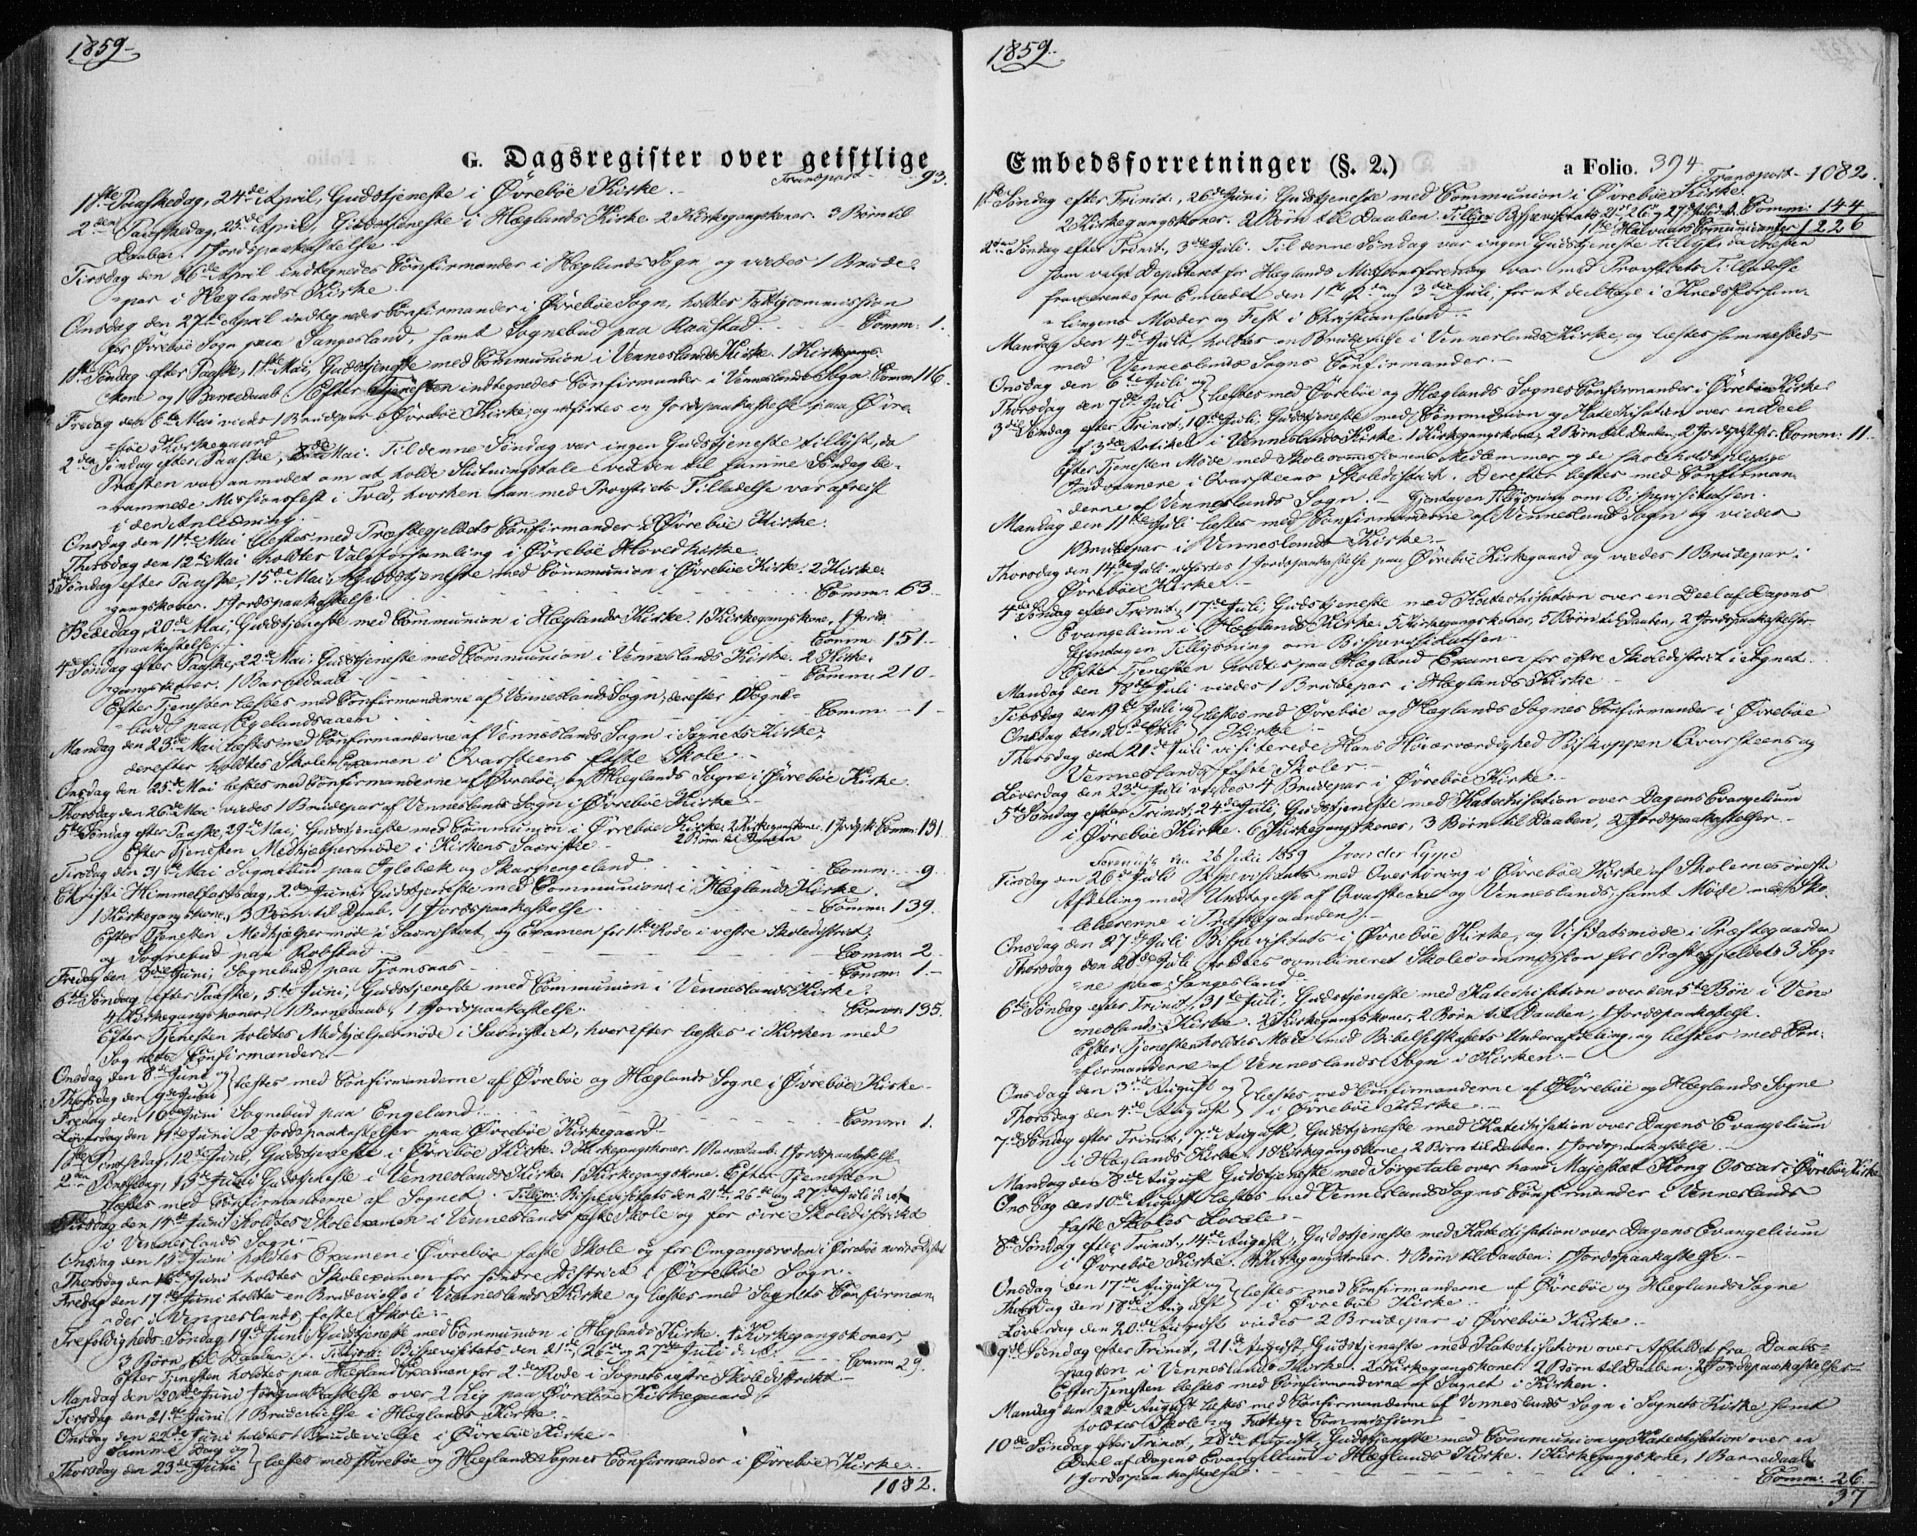 1859.
G. Dagsregister over geistlige
Transport 93.
1ste Paaskedag, 24de April, Gudstjeneste i Øvrebøe Kirke.
2den Paaskedag, 25de April, Gudstjeneste i Hæglands Kirke. 2 Kirkegangskoner. 3 Børn til
Daaben. 1 Jordspaakastelse.
Tirsdag den 26de April indtegnedes Confirmander i Hæglands Sogn og viedes 1 Brude-
par i Hæglands Kirke.
Onsdag den 27de April indtegnedes Confirmander i Øvrebøe Sogn, holdtes Fattigcommission
for Øvrebøe Sogn paa Sangesland, samt Sognebud paa Raastad. Comm: 1.
1ste Søndag efter Paaske, 1ste Mai, Gudstjeneste med Communion i Vennesland Kirke. 1 Kirkegangs-
kone og 1 Barnedaab. Efter Tjenesten indtegnedes Confirmander i Vennesland Sogn Comm: 116.
Fredag den 6te Mai viedes 1 Brudepar i Øvrebøe Kirke, og udførtes en Jordspaakastelse paa Øvre-
bøe Kirkegaard.
2den Søndag efter Paaske, 8de Mai. Til denne Søndag var ingen Gudstjeneste tillyst, da
Præsten var anmodet om at holde Slutningstale ved den til samme Søndag be-
rammede Missionsfest i Tved, hvorhen han med Provstiets Tilladelse var afreist
i den Anledning.
Onsdag den 11te Mai læstes med Præstegjeldets Confirmander i Øvrebøe Kirke.
Thorsdag den 12te Mai holdtes Valgforsamling i Øvrebøe Hovedkirke.
3die Søndag efter Paaske, 15de Mai, Gudstjeneste med Communion i Øvrebøe Kirke. 2 Kirke-
gangskoner. 1 Jordspaakastelse. Comm: 63.
Bededag, 20de Mai, Gudstjeneste med Communion i Hæglands Kirke. 1 Kirkegangskone, 1 Jords-
paakastelse. Comm: 151.
4de Søndag efter Paaske, 22de Mai, Gudstjeneste med Communion i Venneslands Kirke. 2 Kirke-
gangskoner. 1 Barnedaab Comm: 210.
Efter Tjenesten læstes med Confirmanderne af Venneslands Sogn, derefter Sogne-
bud paa Egelandsaaen Comm: 1.
Mandag den 23de Mai læstes med Confirmanderne af Venneslands Sogn i Sognets Kirke;
derefter holdtes Skoleexamen i Qvarsteens faste Skole.
Onsdag den 25de Mai læstes med Confirmanderne af Øvrebøe og Hæglands Sogne i Øvrebøe Kirke.
Thorsdag den 26de Mai viedes 1 Brudepar af Venneslands Sogn i Øvrebøe Kirke.
5te Søndag efter Paaske, 29de Mai, Gudstjeneste med Communion i Øvrebøe Kirke. 2 Kirkegangskoner. 1 Jordspk. Comm: 131.
Efter Tjenesten Medhjelpermøde i Kirkens Sacristie. 2 Børn til Daaben
Tirsdag den 31te Mai Sognebud paa Iglebæk og Skarpengeland Comm: 9.
Christi Himmelfartsdag, 2den Juni, Gudstjeneste med Communion i Hæglands Kirke.
1 Kirkegangskone, 3 Børn til Daab, 1 Jordspaakastelse. Comm: 139.
Efter Tjenesten Medhjelpermøde i Sacristiet, og Examen for 1ste Rode i vestre Skoledistrict
og Sognebud paa Robstad Comm: 2.
Fredag den 3die Juni, Sognebud paa Tjomsaas Comm: 1.
6te Søndag efter Paaske, 5te Juni, Gudstjeneste med Communion i Venneslands Kirke.
4 Kirkegangskoner, 1 Barnedaab, 1 Jordspaakastelse. Comm: 135.
Efter Tjenesten holdtes Medhjelpermøde i Sacristiet, hvorefter læstes i Kirken med
Sognets Confirmander.
Onsdag den 8de Juni og
Thorsdag den 9de Juni } læstes med Confirmanderne af Øvrebøe og Hæglands Sogne i Øvrebøe Kirke.
Fredag den 10de Juni Sognebud paa Engeland. Comm: 1.
Løverdag den 11te Juni 2 Jordspaakastelser paa Øvrebøe Kirkegaard.
1ste Pintsedag, 12te Juni, Gudstjeneste i Øvrebøe Kirke. 3 Kirkegangskoner. 1 Barnedaab. 1 Jordspaakastelse.
2den Pintsedag, 13de Juni Gudstjeneste i Venneslands Kirke. 1 Kirkegangskone. Efter Tjenesten
læstes med Confirmanderne af Sognet. Tillyst: Bispevisitats den 21de, 26de og 27de Juli d. A.
Tirsdag den 14de Juni holdtes Skoleexamen i Venneslands faste Skole og for øvre Skoledistrict
i Venneslands Sogn.
Onsdag den 15de Juni holdtes Examen i Øvrebøe faste Skole og for Omgangsroden i Øvrebøe nordre District
Thorsdag den 16de Juni holdtes Skoleexamen for søndre District i Øvrebøe Sogn.
Fredag den 17de Juni holdtes en Brudevielse i Venneslands Kirke og læstes med Sognets Confirman-
der i Venneslands faste Skole.
Trefoldigheds Søndag 19de Juni, Gudstjeneste med Communion i Hæglands Kirke. 4 Kirkegangskoner
3 Børn til Daaben. Tillyst: Bispevisitats den 21de, 26de og 27de Juli d. A. Comm: 29.
Efter Tjenesten holdtes paa Hægland Examen for 2den Rode i Sognets vestre Skoledistrikt.
Mandag den 20de Juni Jordspaakastelse over 2 Lig paa Øvrebøe Kirkegaard.
Tirsdag den 21de Juni 1 Brudevielse i Hæglands Kirke.
Onsdag den 22de Juni holdtes 1 Brudevielse i Øvrebøe Kirke.
Samme Dag og
Thorsdag den 23de Juni } læstes med Øvrebøe og Hæglands Sognes Confirmander i Øvrebøe Kirke.
1082.
1859.
Embedsforretninger (§. 2.)
a Folio. 394
Transport 1082.
1ste Søndag efter Trinit., 26de Juni, Gudstjeneste med Communion i Øvrebøe Kirke.
2 Kirkegangskoner. 2 Børn til Daaben. Tillyst: Bispevisitats 21de 26de og 27de Juli d. A. Comm: 144
1ste Halvaars Communicanter 1226
2den Søndag efter Trinit., 3die Juli. Til denne Søndag var ingen Gudstjeneste tillyst, da Præsten
som valgt Deputeret for Hæglands Missionsforening var med Provstiets Tilladelse
fraværende fra Embedet den 1ste, 2den og 3die Juli, for at deeltage i Kredsforsam-
lingens Møder og Fest i Christiansand.
Mandag den 4de Juli holdtes en Brudevielse i Venneslands Kirke, og læstes sammesteds
med Venneslands Sogns Confirmander.
Onsdag den 6te Juli og
Thorsdag den 7de Juli } læstes med Øvrebøe og Hæglands Sognes Confirmander i Øvrebøe Kirke
3die Søndag efter Trinit., 10de Juli, Gudstjeneste med Communion og Katechisation over en Deel
af 3die Artikel i Venneslands Kirke. 1 Kirkegangskone, 2 Børn til Daaben, 2 Jordspkstlsr. Comm: 11.
Efter Tjenesten Møde med Skolecommissionens Medlemmer og de skoleholdspligtige
Indvaanere i Qvarsteens Skoledistrict. Derefter læstes med Confirman-
derne af Venneslands Sogn. Gjentagen Tillysning om Bispevisitatsen.
Mandag den 11te Juli læstes med Confirmanderne af Venneslands Sogn og viedes
1 Brudepar i Venneslands Kirke.
Thorsdag den 14de Juli udførtes 1 Jordspaakastelse paa Øvrebøe Kirkegaard og viedes 1 Brudepar i
Øvrebøe Kirke.
4de Søndag efter Trinit., 17de Juli, Gudstjeneste med Katechisation over en Deel af Dagens
Evangelium i Hæglands Kirke. 5 Kirkegangskoner, 5 Børn til Daaben, 2 Jordspaakastelser.
Gjentagen Tillysning om Bispevisitatsen.
Efter Tjenesten holdtes paa Hægland Examen for østre Skoledistrict i Sognet.
Mandag den 18de Juli viedes 1 Brudepar i Hæglands Kirke.
Tirsdag den 19de Juli og
Onsdag den 20de Juli } læstes med Øvrebøe og Hæglands Sognes Confirmander i Øvrebøe
Kirke.
Thorsdag den 21de Juli visiterede Hans Høiærværdighed Biskoppen Qvarsteens og
Venneslands faste Skoler.
Løverdag den 23de Juli viedes 4 Brudepar i Øvrebøe Kirke.
5te Søndag efter Trinit., 24de Juli, Gudstjeneste med Katechisation over Dagens Evangelium
i Øvrebøe Kirke. 6 Kirkegangskoner, 3 Børn til Daaben, 2 Jordspaakastelser.
den 26 Juli 1859 J von der Lippe
Tirsdag den 26de Juli Bispevisitats med Overhøring i Øvrebøe Kirke af Skolernes øverste
Afdeling med Undtagelse af Qvarsteens og Venneslands, samt Møde med Sko-
lelærerne i Præstegaarden.
Onsdag den 27de Juli Bispevisitats i Øvrebøe Kirke, og Visitatsmøde i Præstegaarden
Thorsdag den 28de Juli holdtes combineret Skolecommission for Præstegjeldets 3 Sog-
ne paa Sangesland.
6te Søndag efter Trinit., 31te Juli, Gudstjeneste med Katechisation over den 5te Bøn i Ven-
neslands Kirke. 2 Kirkegangskoner, 2 Børn til Daaben, 1 Jordspaakastelse.
Efter Tjenesten holdtes Møde med Bibelselskabets Underafdeling, og læstes med Con-
firmanderne af Venneslands Sogn i Kirken.
Onsdag den 3die August og
Thorsdag den 4de August } læstes med Confirmanderne af Øvrebøe og Hæglands Sogne
i Øvrebøe Kirke.
7de Søndag efter Trinit., 7de August, Gudstjeneste med Katechisation over Dagens Evangelium
i Hæglands Kirke. 1 Kirkegangskone, 2 Børn til Daaben. 1 Jordspaakastelse.
Mandag den 8de August Gudstjeneste med Sørgetale over hans Majestæt Kong Oscar i Øvrebøe Kirke
Onsdag den 10de August læstes med Venneslands Sogns Confirmander i Venneslands
faste Skoles Locale.
8de Søndag efter Trinit., 14de August, Gudstjeneste med Katechisation over Dagens Evangelium
i Øvrebøe Kirke. 4 Kirkegangskoner. 4 Børn til Daaben. 1 Jordspaakastelse.
Onsdag den 17de August og
Thorsdag den 18de August } læstes med Confirmanderne af Øvrebøe og Hæglands Sogne
i Øvrebøe Kirke.
Løverdag den 20de August viedes 2 Brudepar i Øvrebøe Kirke.
9de Søndag efter Trinit., 21de August, Gudstjeneste med Katechisation over Affaldet fra Daabs-
pagten i Venneslands Kirke. 2 Kirkegangskoner. 2 Børn til Daaben. 2 Jordspaakastelser.
Efter Tjenesten læstes med Confirmanderne af Sognet i Kirken.
Mandag den 22de August læstes med Confirmanderne af Venneslands Sogn i Sognets Kirke, samt
holdtes Skole- og Fattig-Commission
10de Søndag efter Trinit., 28de August, Gudstjeneste med Communion og Katechisation over en
Deel af Dagens Evangelium i Hæglands Kirke. 1 Kirkegangskone, 1 Barnedaab
1 Jordspaakastelse. Comm: 26.
37